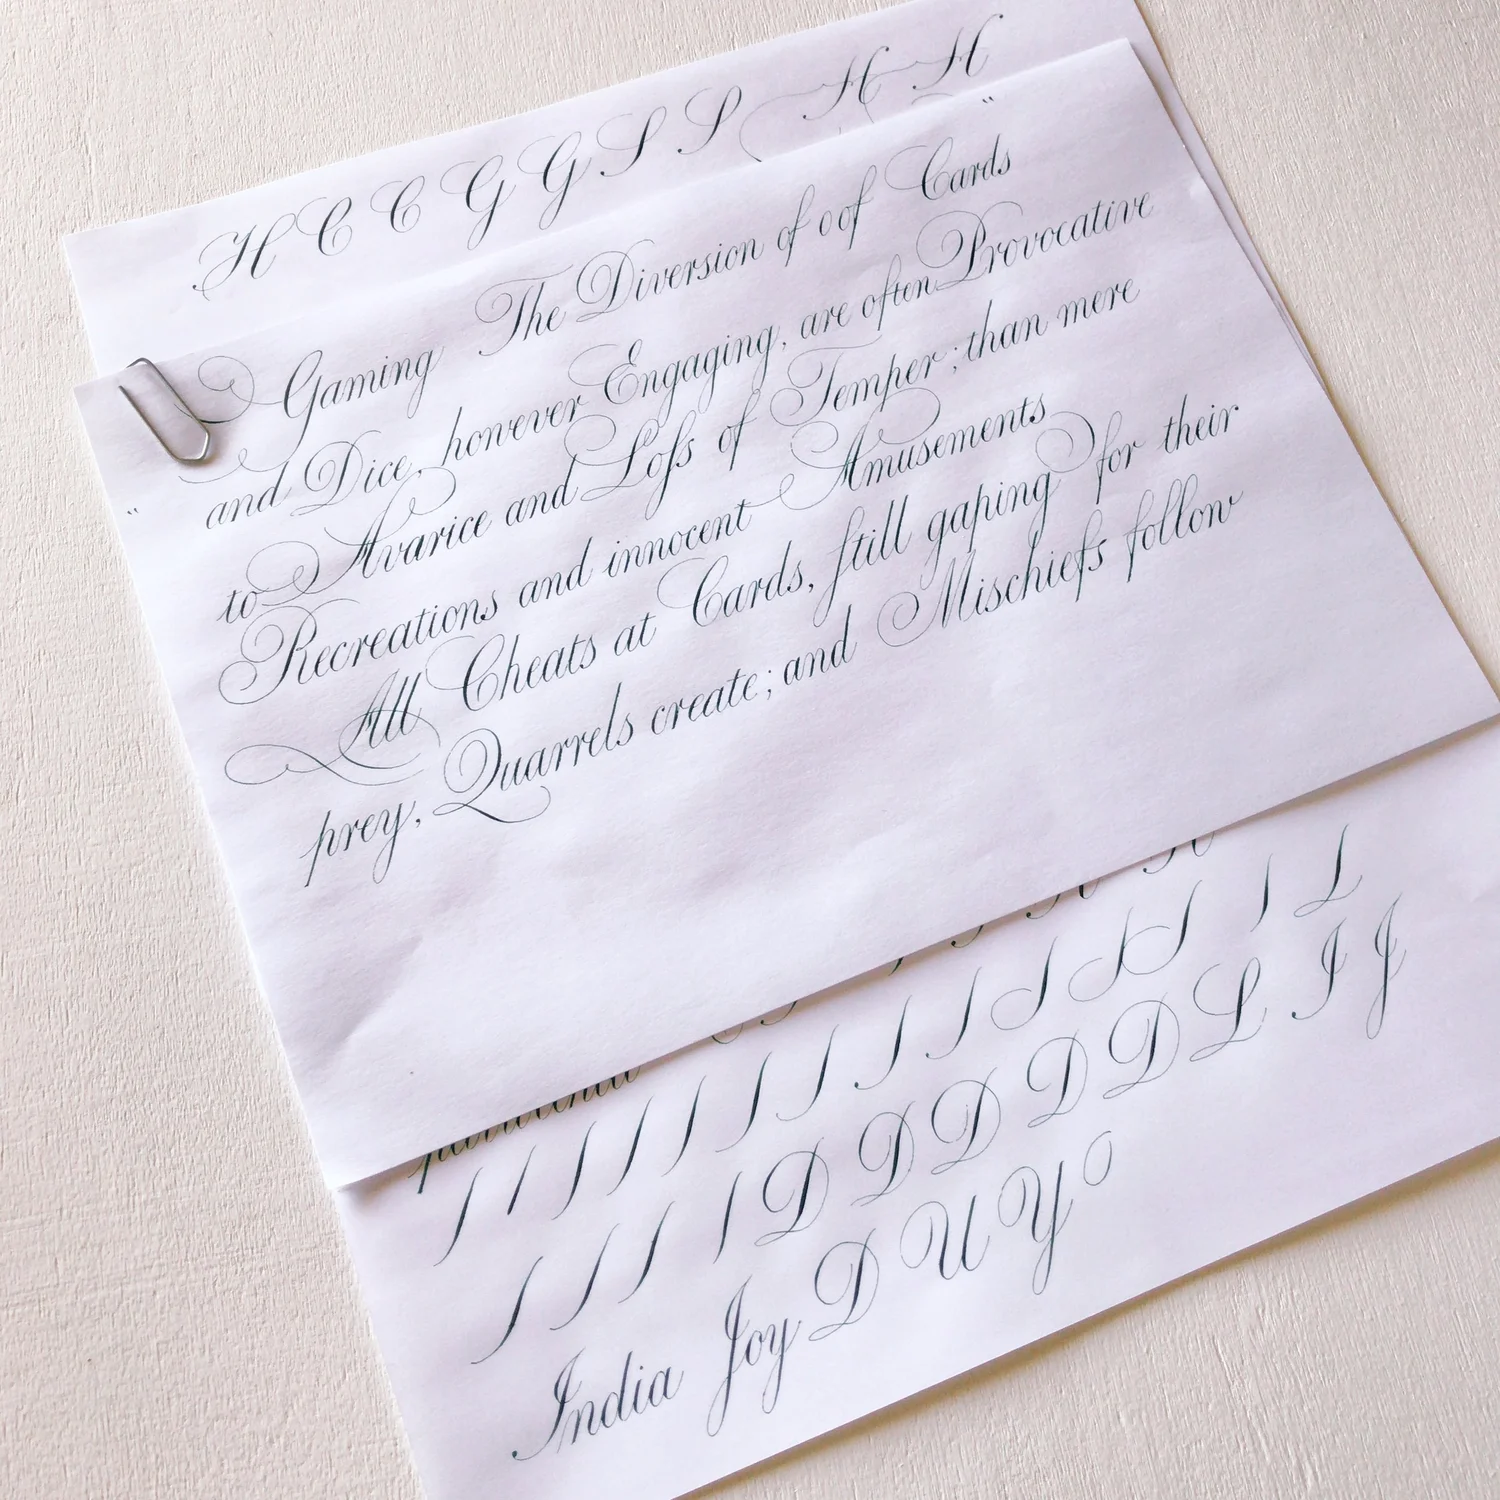 H C C G G S S H H
Gaming The Diversion of oof Cards
and Dice, however Engaging, are often Provocative
to Avarice and Loſs of Temper; than mere
Recreations and innocent Amusements
All Cheats at Cards, ſtill gaping for their
prey, Quarrels create; and Mischiefs follow
D D D D D L I J
India Joy D U Y O